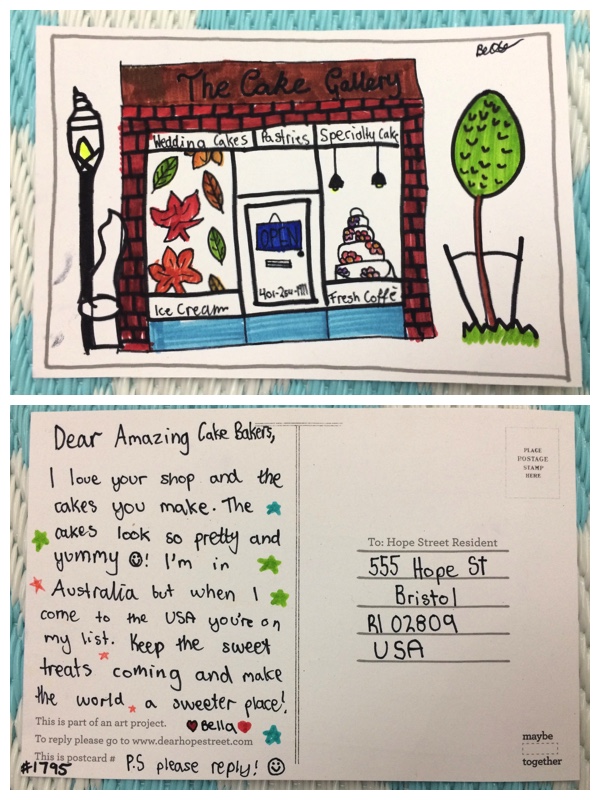 The Cake Gallery
Wedding Cakes
Pastries
Specialty Cake
OPEN
Ice Cream
Fresh Coffè
Dear Amazing Cake Bakers,
I love your shop and the
cakes you make. The
cakes look so pretty and
yummy ☺! I'm in
Australia but when I
come to the USA you're on
my list. Keep the sweet
treats coming and make
the world a sweeter place!
This is part of an art project.
♥ Bella ♥
To reply please go to www.dearhopestreet.com
This is postcard #
#1795
P.S please reply! ☺
PLACE
POSTAGE
STAMP
HERE
To: Hope Street Resident
555 Hope St
Bristol
RI 02809
USA
maybe
together